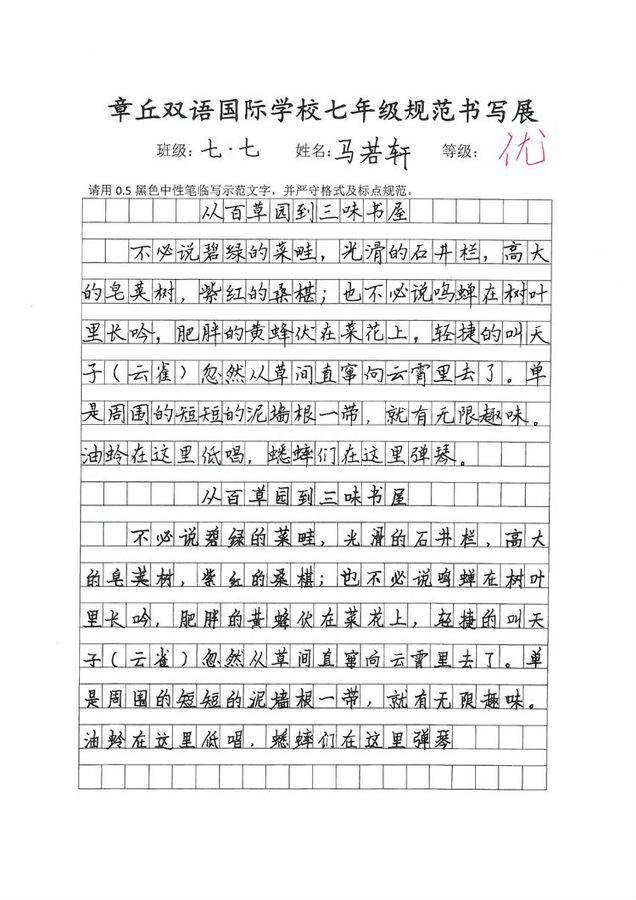 章丘双语国际学校七年级规范书写展
班级：七·七 姓名：马若轩 等级：优
请用 0.5 黑色中性笔临写示范文字，并严守格式及标点规范。
从百草园到三味书屋
不必说碧绿的菜畦，光滑的石井栏，高大
的皂荚树，紫红的桑椹；也不必说鸣蝉在树叶
里长吟，肥胖的黄蜂伏在菜花上，轻捷的叫天
子（云雀）忽然从草间直窜向云霄里去了。单
是周围的短短的泥墙根一带，就有无限趣味。
油蛉在这里低唱，蟋蟀们在这里弹琴。
从百草园到三味书屋
不必说碧绿的菜畦，光滑的石井栏，高大
的皂荚树，紫红的桑椹；也不必说鸣蝉在树叶
里长吟，肥胖的黄蜂伏在菜花上，轻捷的叫天
子（云雀）忽然从草间直窜向云霄里去了。单
是周围的短短的泥墙根一带，就有无限趣味。
油蛉在这里低唱，蟋蟀们在这里弹琴